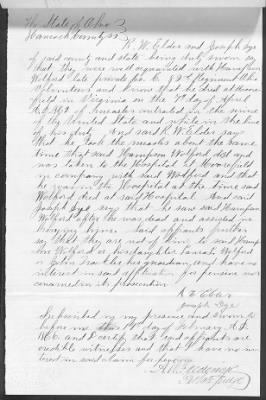 The State of Ohio
Hancock County SS
R. W. Elder and Joseph Dye
of said county and state being duly sworn say
that they were well acquainted with Hampson
Wolford late private Co. G 82 Regiment Ohio
Volunteers and know that he died at Moore
field in Virginia on the 7 day of April
A.D. 1862 of measles contracted in the service
of the United States and while in the line
of his duty. And said R. W. Elder says
that he took the measles about the same
time that said Hampson Wolford did and
was taken to the Hospital at Moorefield
in company with said Wolford and that
he was in the Hospital at the time said
Wolford died at said Hospital. And said
Joseph Dye says that he saw said Hampson
Wolford after he was dead and assisted in
burying him. Said affiants further
say that they are not of kin to said Hamp
son Wolford or his daughter Wolford
or her guardian, and have no
interest in said application for pension nor
concerned in its prosecution
R W Elder
Joseph Dye
Subscribed in my presence and sworn to
before me this day of February A.D.
and I certify that said affiants are
credible witnesses and that I have no in
terest in said claim for pension